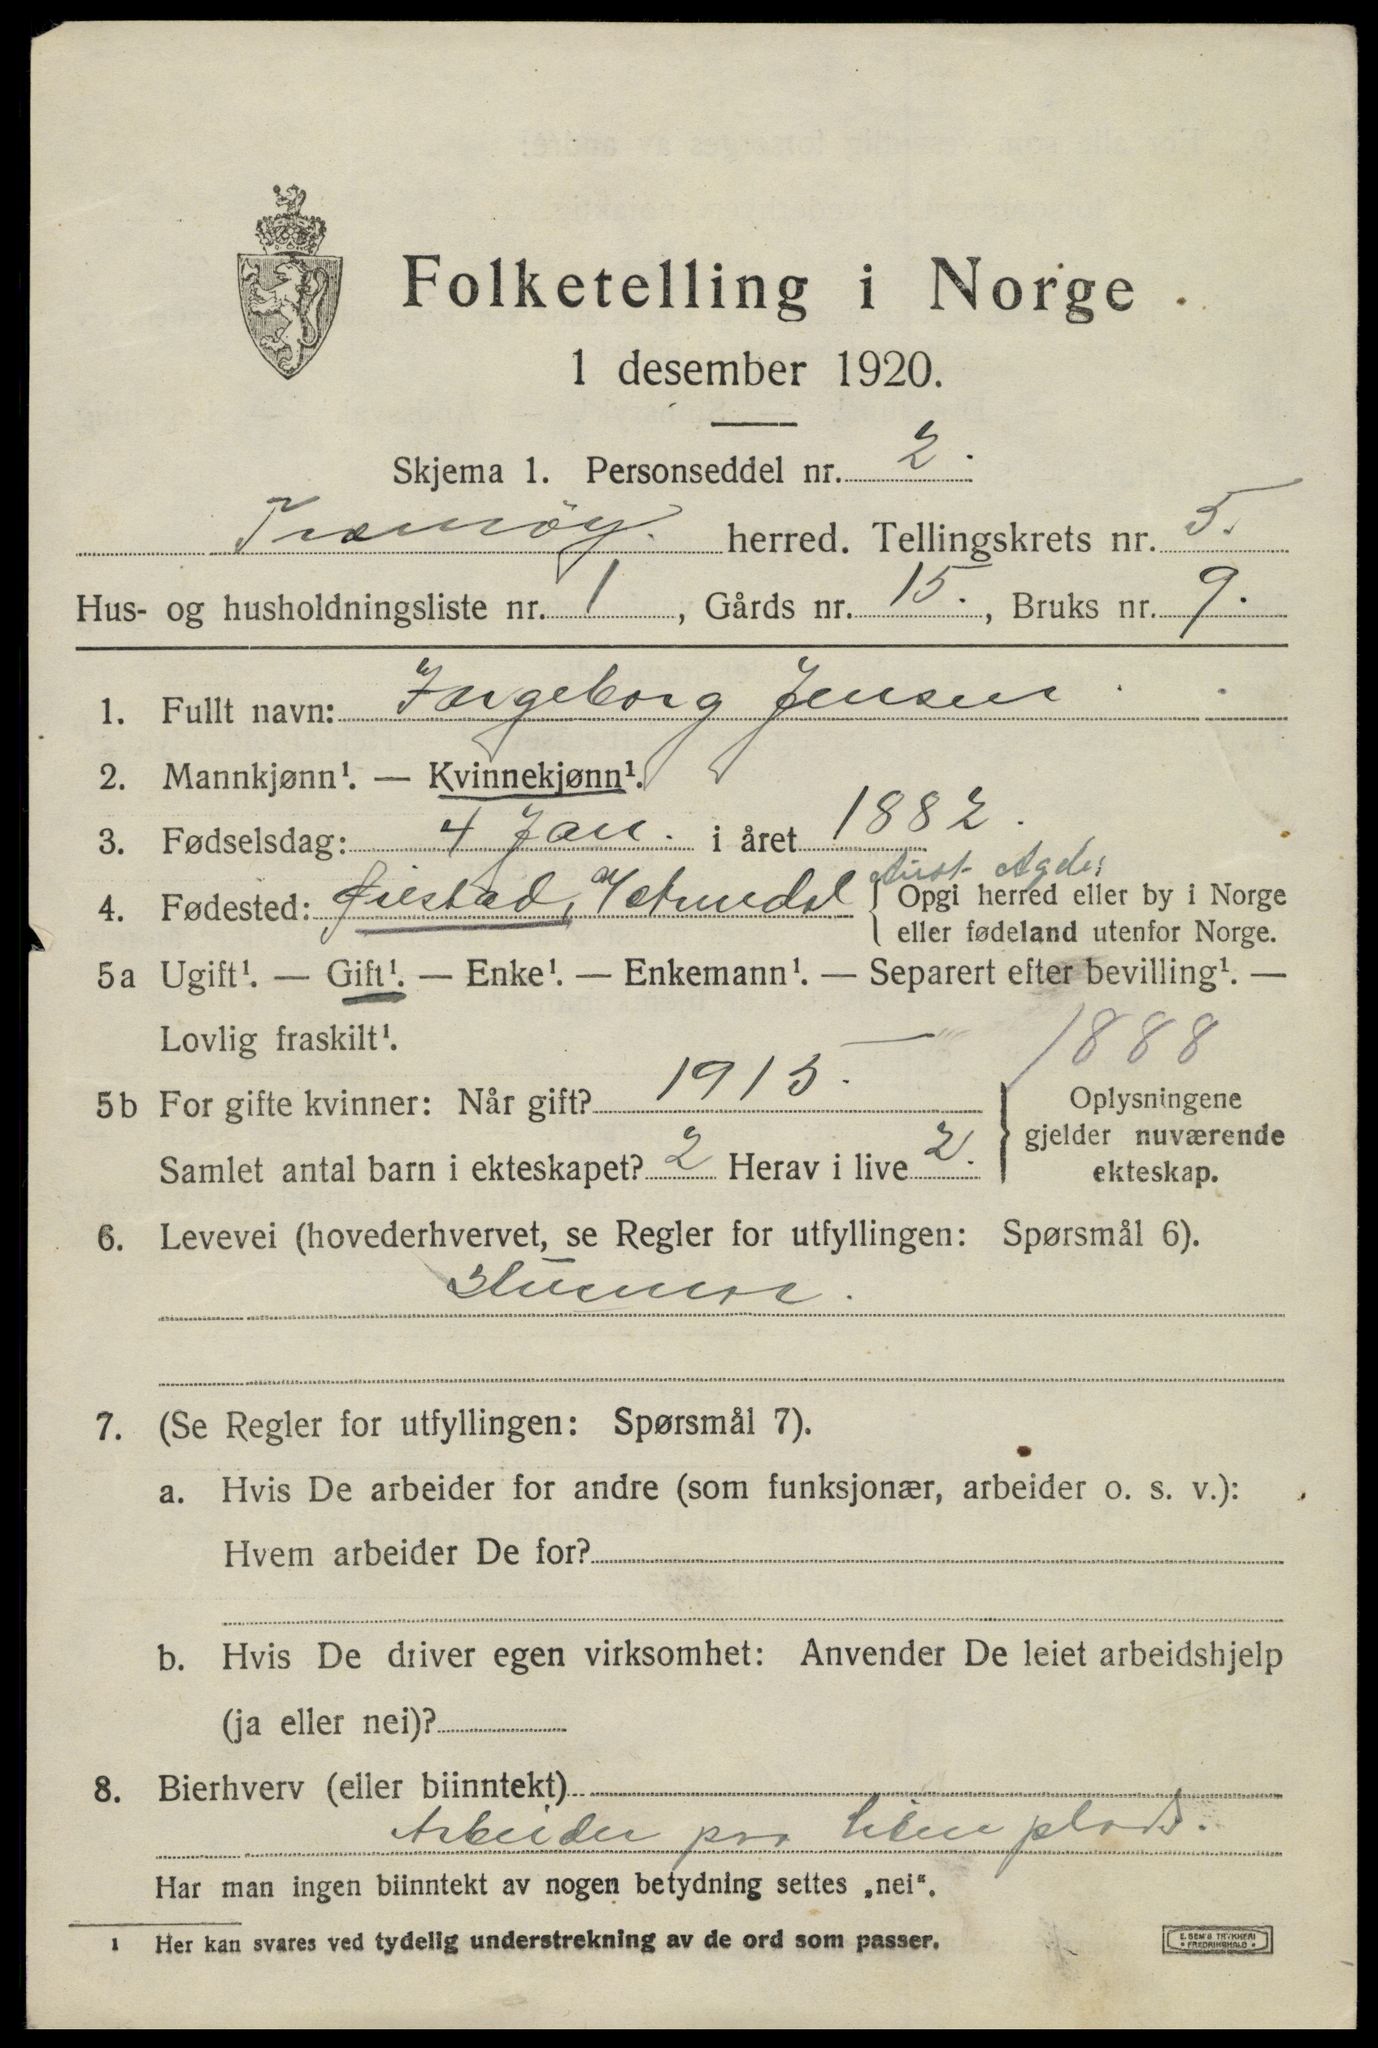 Folketelling i Norge
1 desember 1920.
Skjema 1. Personseddel nr. 2.
Tromøy. herred. Tellingskrets nr. 5.
Hus- og husholdningsliste nr. 1, Gårds nr. 15., Bruks nr. 9.
1. Fullt navn: Ingeborg Jensen
2. Mannkjønn¹. — Kvinnekjønn¹.
3. Fødselsdag: 4 Jan. i året 1882.
Aust-Agder
4. Fødested: Øiestad, Arendal { Opgi herred eller by i Norge
eller fødeland utenfor Norge.
5a Ugift¹. — Gift¹. — Enke¹. — Enkemann¹. — Separert efter bevilling¹. —
Lovlig fraskilt¹.
1888
5b For gifte kvinner: Når gift? 1915.
Samlet antal barn i ekteskapet? 2 Herav i live 2.
Oplysningene
gjelder nuværende
ekteskap.
6. Levevei (hovederhvervet, se Regler for utfyllingen: Spørsmål 6).
Husmor.
7. (Se Regler for utfyllingen: Spørsmål 7).
a. Hvis De arbeider for andre (som funksjonær, arbeider o. s. v.):
Hvem arbeider De for?
b. Hvis De driver egen virksomhet: Anvender De leiet arbeidshjelp
(ja eller nei)?
8. Bierhverv (eller biinntekt)
Arbeider paa liten plads.
Har man ingen biinntekt av nogen betydning settes „nei“.
1 Her kan svares ved tydelig understrekning av de ord som passer.
E. SEM'S TRYKKERI
• FREDRIKSHALD •